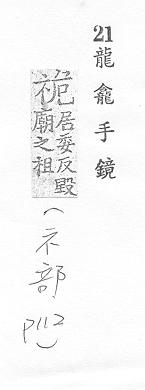 21龍龕手鏡
祪居委反毀
廟之祖
(示部
P112)